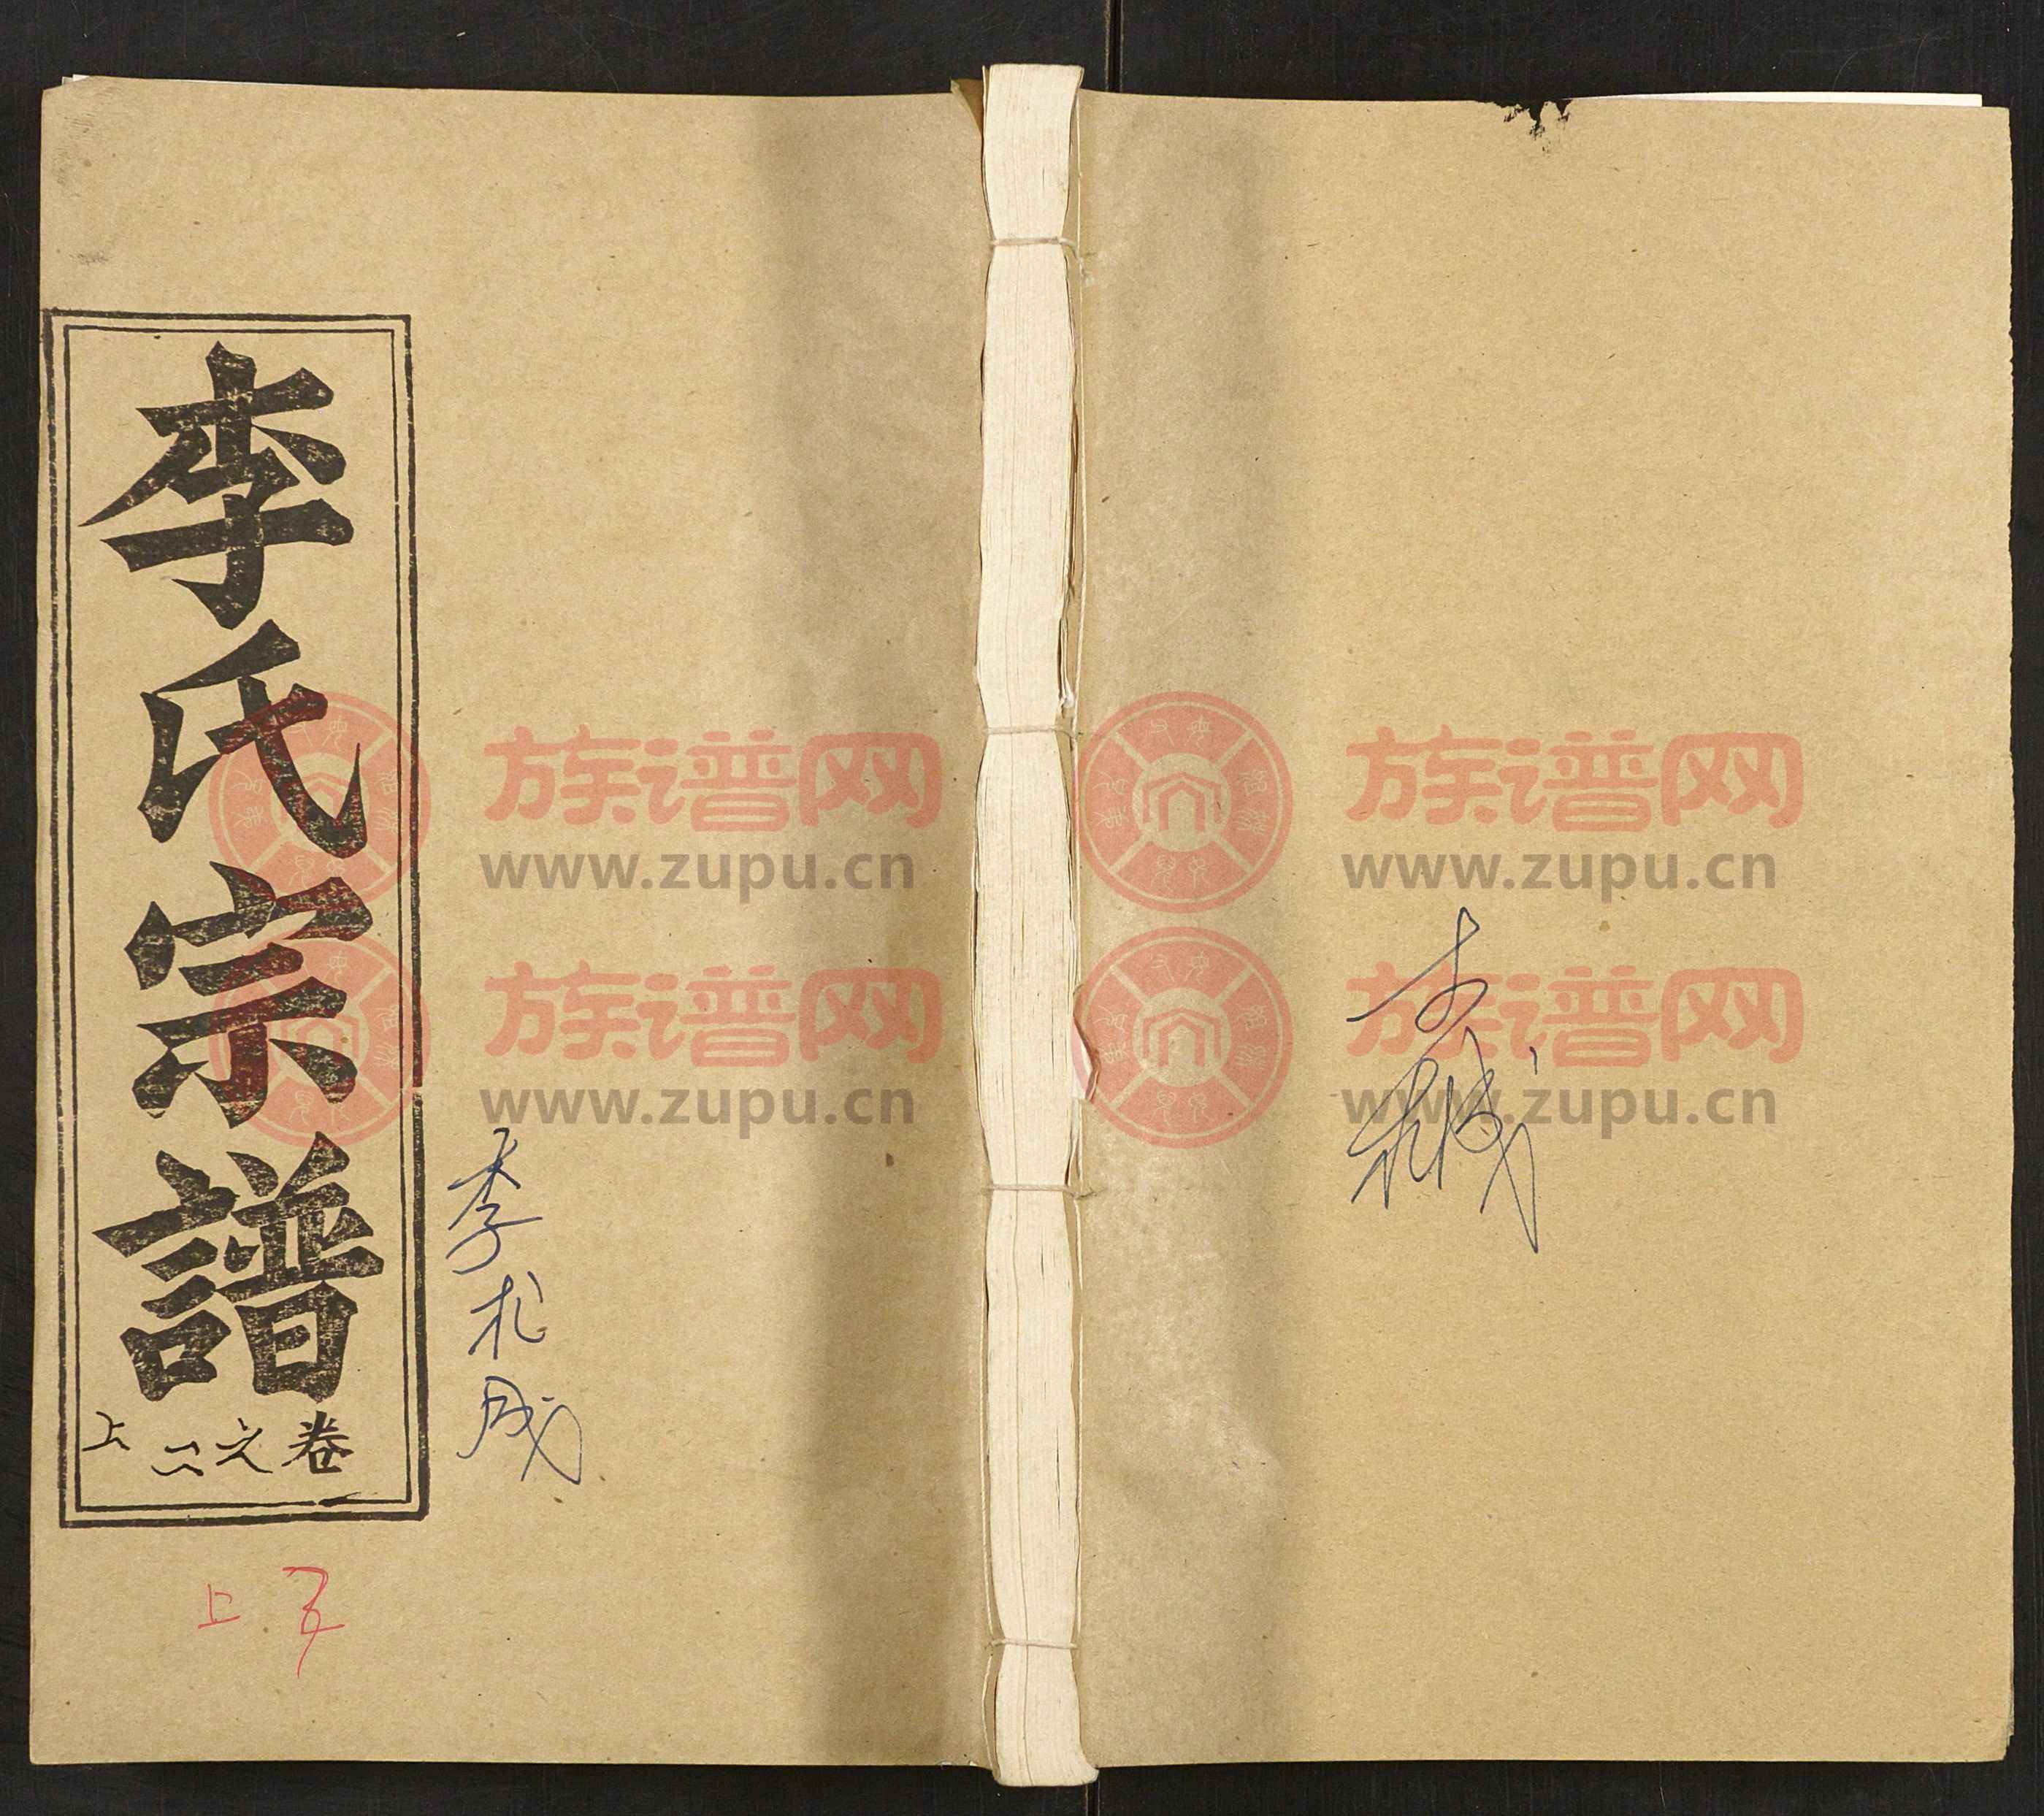 李氏宗譜
卷之二上
李札成
上
族谱网
www.zupu.cn
族谱网
www.zupu.cn
族谱网
www.zupu.cn
族谱网
www.zupu.cn